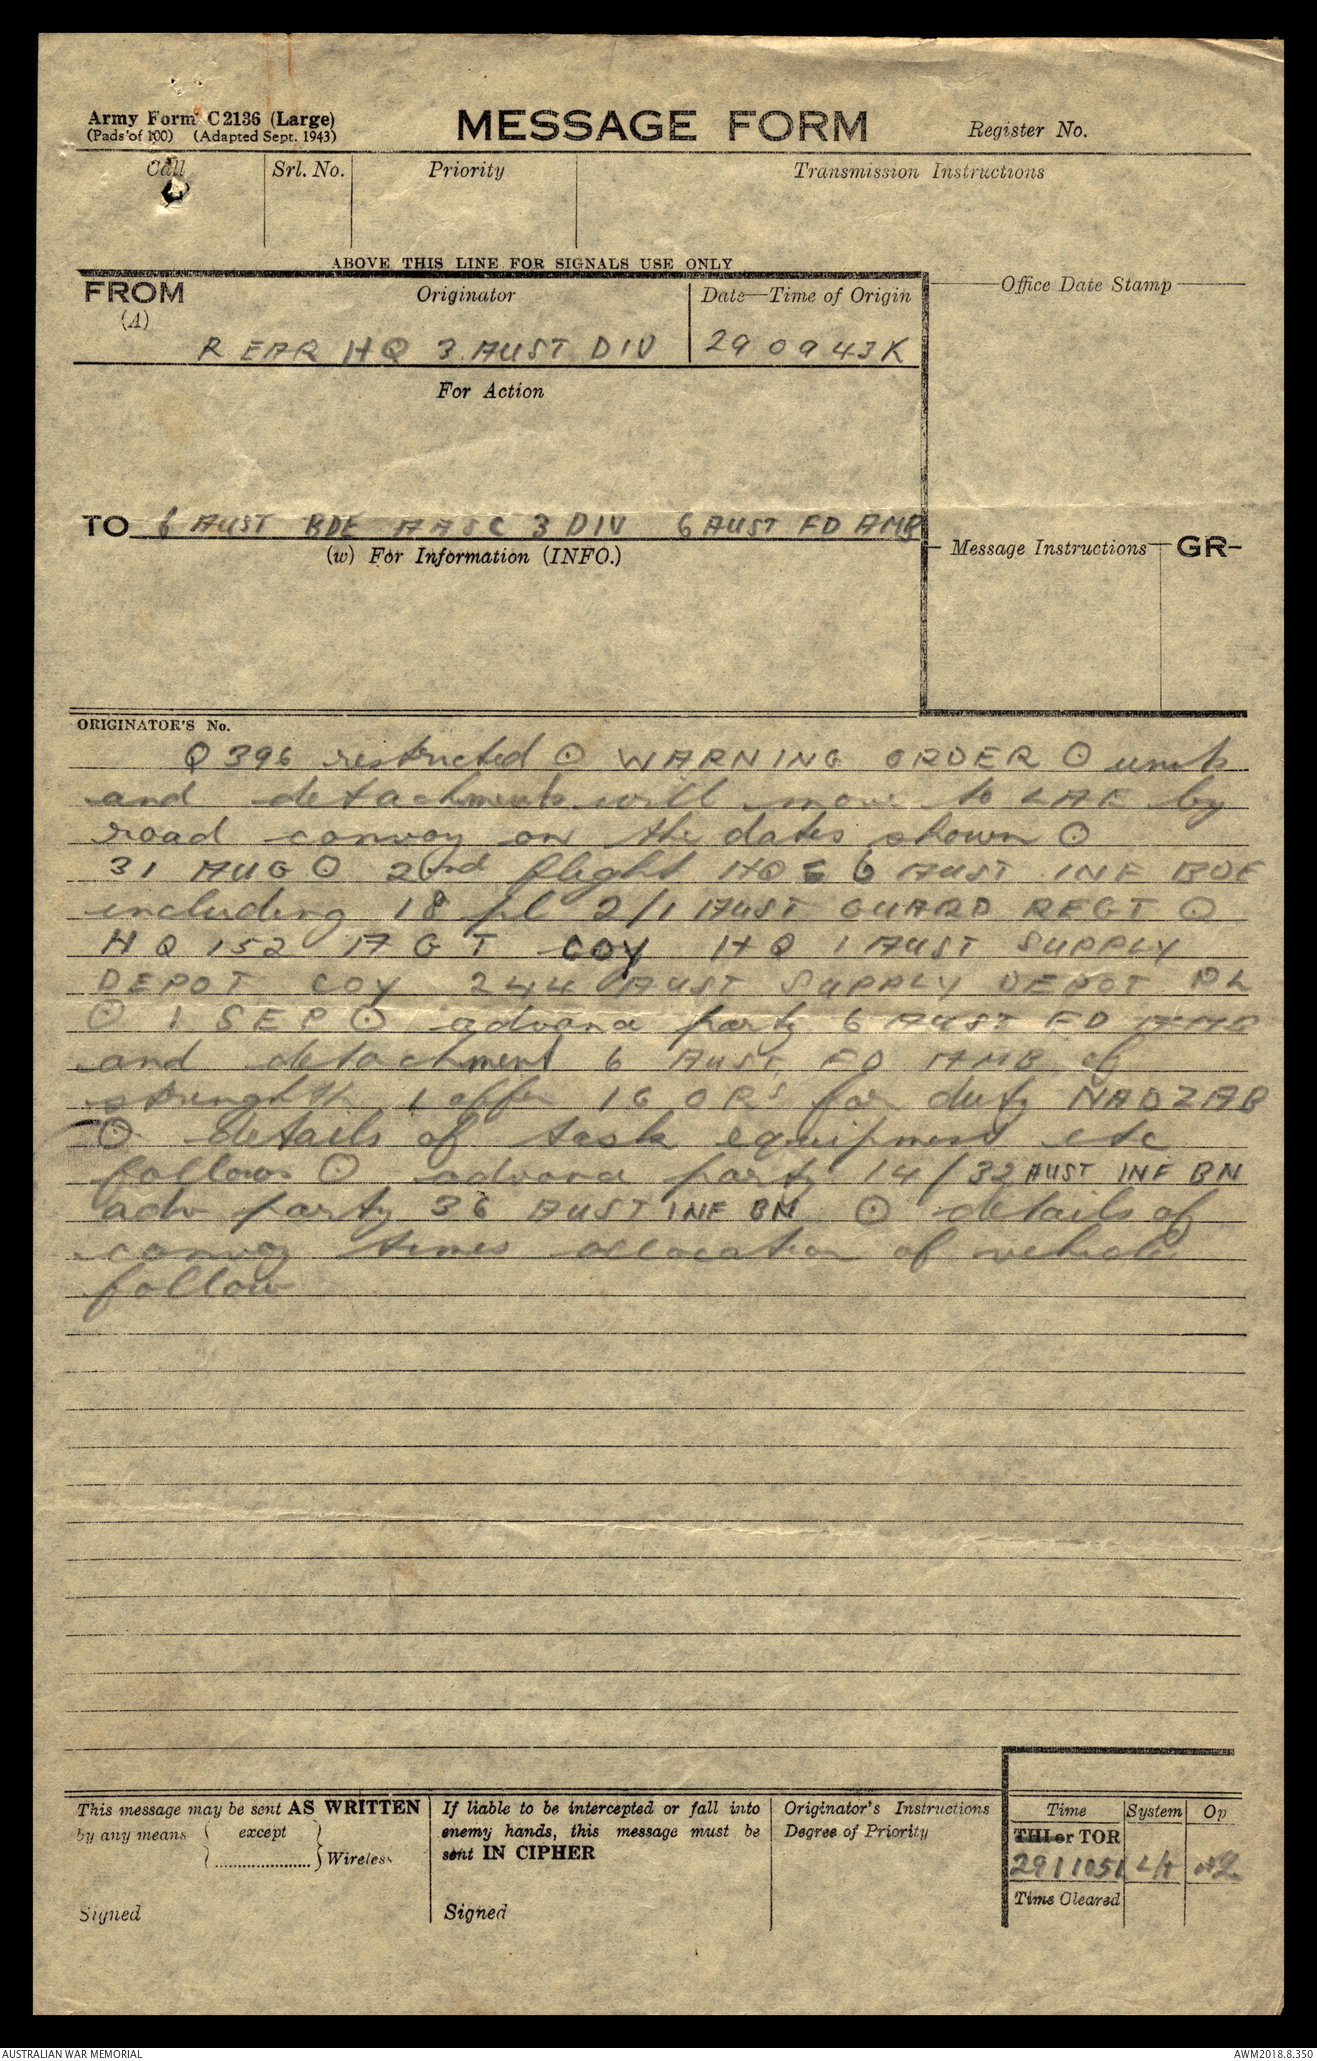 Army Form C 2136 (Large)
(Pads of 100) (Adapted Sept. 1943)
MESSAGE FORM
Register No.
Call
Srl. No.
Priority
Transmission Instructions
ABOVE THIS LINE FOR SIGNALS USE ONLY
FROM
(A)
Originator
Date—Time of Origin
Office Date Stamp
REAR HQ 3 AUST DIV
290943K
For Action
TO 6 AUST BDE AASC 3 DIV 6 AUST FD AMB
(w) For Information (INFO.)
Message Instructions
GR-
ORIGINATOR'S No.
Q 396 restricted ⊙ WARNING ORDER ⊙ units
and detachments will move to LAE by
road convoy on the dates shown ⊙
31 AUG ⊙ 2nd flight HQ 6 AUST INF BDE
including 18 pl 2/1 AUST GUARD REGT ⊙
HQ 152 A G T COY HQ 1 AUST SUPPLY
DEPOT COY 244 AUST SUPPLY DEPOT PL
⊙ 1 SEP ⊙ advance party 6 AUST FD AMB
and detachment 6 AUST FD AMB of
strength 1 offr 16 ORs for duty NADZAB
⊙ details of task equipment etc
follows ⊙ advance party 14/32 AUST INF BN
adv party 36 AUST INF BN ⊙ details of
convoy times allocation of vehicles
follow
This message may be sent AS WRITTEN
by any means { except } Wireless
Signed
If liable to be intercepted or fall into
enemy hands, this message must be
sent IN CIPHER
Signed
Originator's Instructions
Degree of Priority
Time
System
Op
THI or TOR
2911051
L/T
Time Cleared
AUSTRALIAN WAR MEMORIAL
AWM2018.8.350